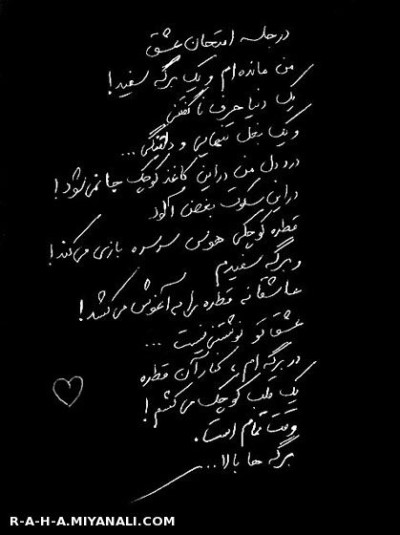 در جلسه امتحان عشق
من مانده ام و یک برگه سفید!
یک دنیا حرف ناگفتنی
و یک بغل تنهایی و دلتنگی...
درد دل من در این کاغذ کوچک جا نمی شود!
در این سکوت بغض آلود
قطره کوچکی هوس سرسره بازی می کند!
و برگه سفیدم
عاشقانه قطره را به آغوش می کشد!
عشق تو نوشتنی نیست...
در برگه ام، کنار آن قطره
یک قلب کوچک می کشم!
وقت تمام است.
برگه ها بالا...
R-A-H-A.MIYANALI.COM